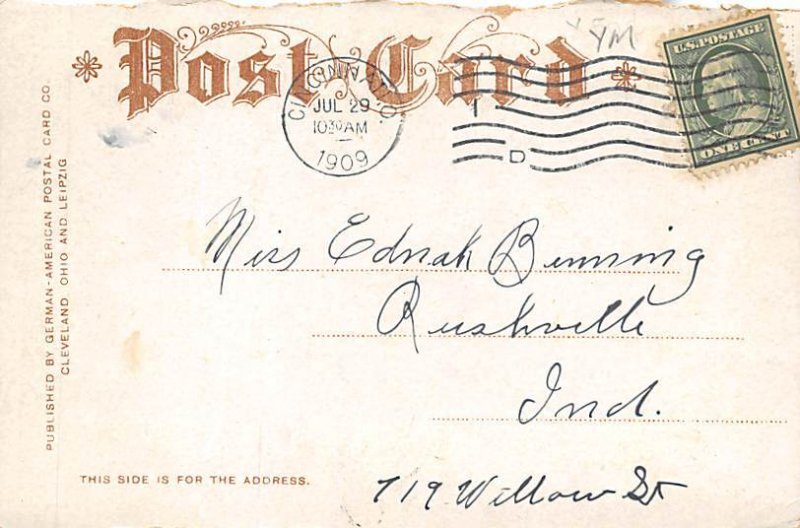 Post Card
YM
U.S. POSTAGE
ONE CENT
CINCINNATI, O.
JUL 29
10 30 AM
1909
D
Miss Ednah Binning
Rushville
Ind.
719 Willow St
THIS SIDE IS FOR THE ADDRESS.
PUBLISHED BY GERMAN-AMERICAN POSTAL CARD CO.
CLEVELAND OHIO AND LEIPZIG